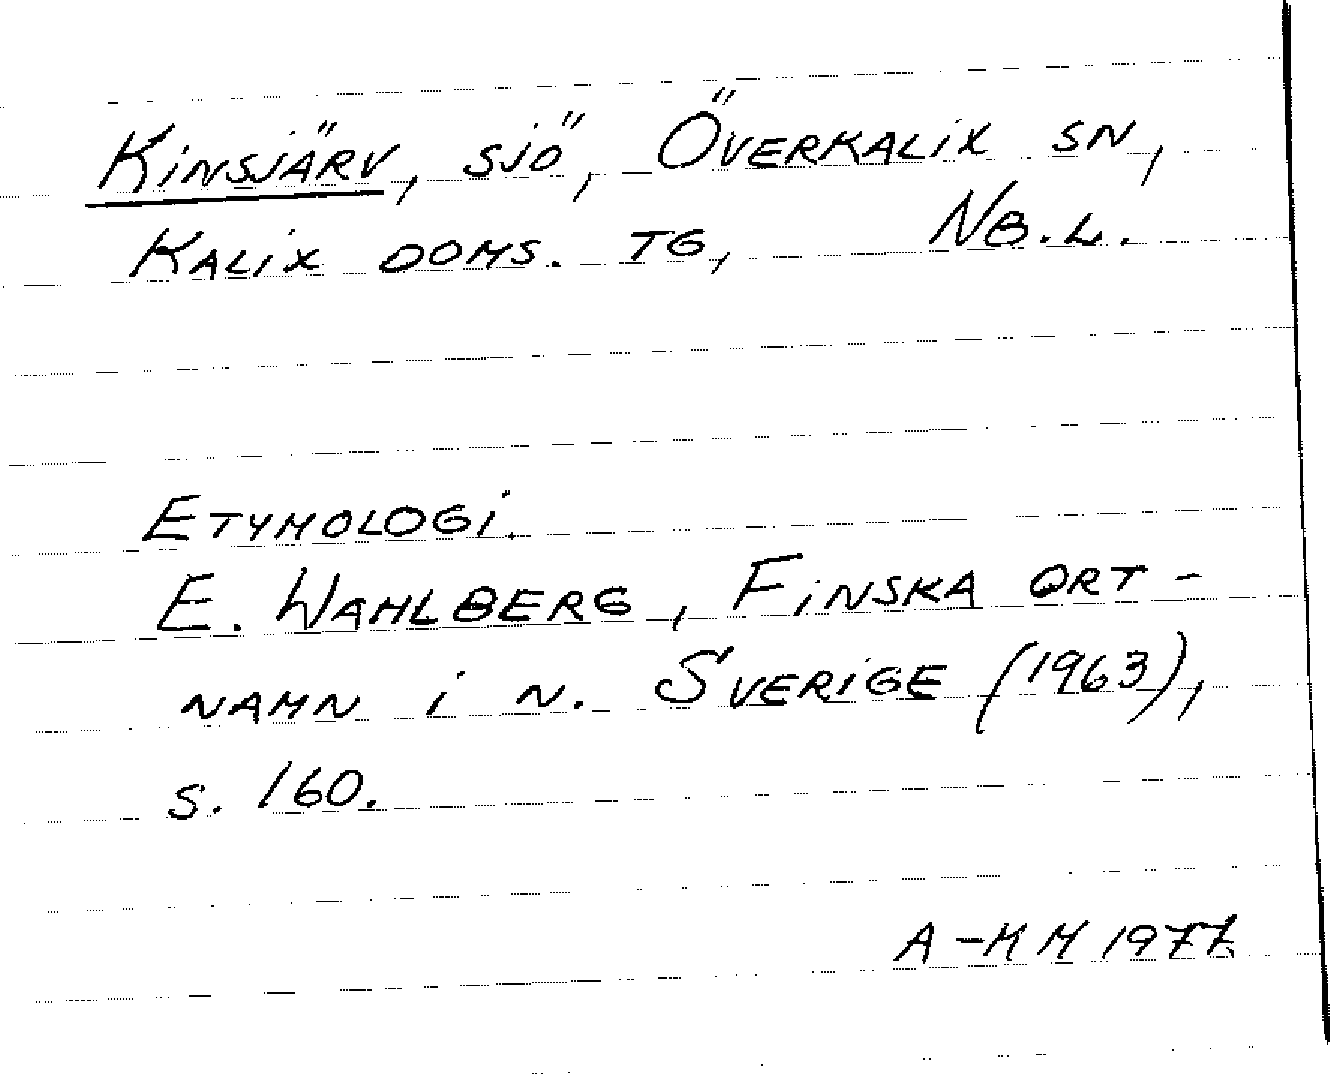 Kinsjärv, sjö, Överkalix sn,
Kalix doms. tg, Nb.l.
Etymologi.
E. Wahlberg, Finska ort-
namn i n. Sverige (1963),
s. 160.
A-MM 1977